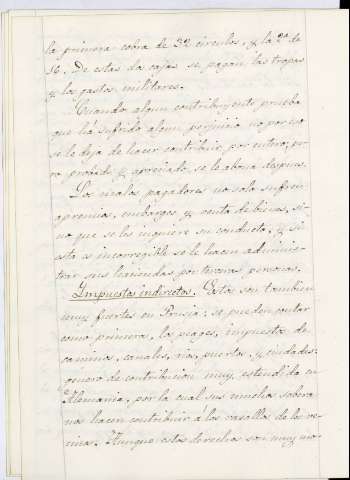 la primera cobra de 32 circulos, y la 2ª de
16. De estas dos cajas se pagan las tropas
y los gastos militares.
Cuando algun contribuyente prueba
que ha sufrido algun perjuicio no por eso
se le deja de hacer contribuir por entero; pe-
ro probado y apreciado, se le abona despues.
Los malos pagadores no solo sufren
apremios, embargos y venta de bienes, si-
no que se les inquiere su conducta, y si
esta es incorregible se le hacen adminis-
trar sus haciendas por terceras personas.
Impuestos indirectos. Estos son tambien
muy fuertes en Prusia: se pueden contar
como primeros, los peages, impuestos de
caminos, canales, rios, puertos, y ciudades:
genero de contribucion muy estendida en
Alemania, por la cual sus muchos sobera-
nos hacen contribuir á los vasallos de los ve-
cinos. Aunque estos derechos son muy mo-